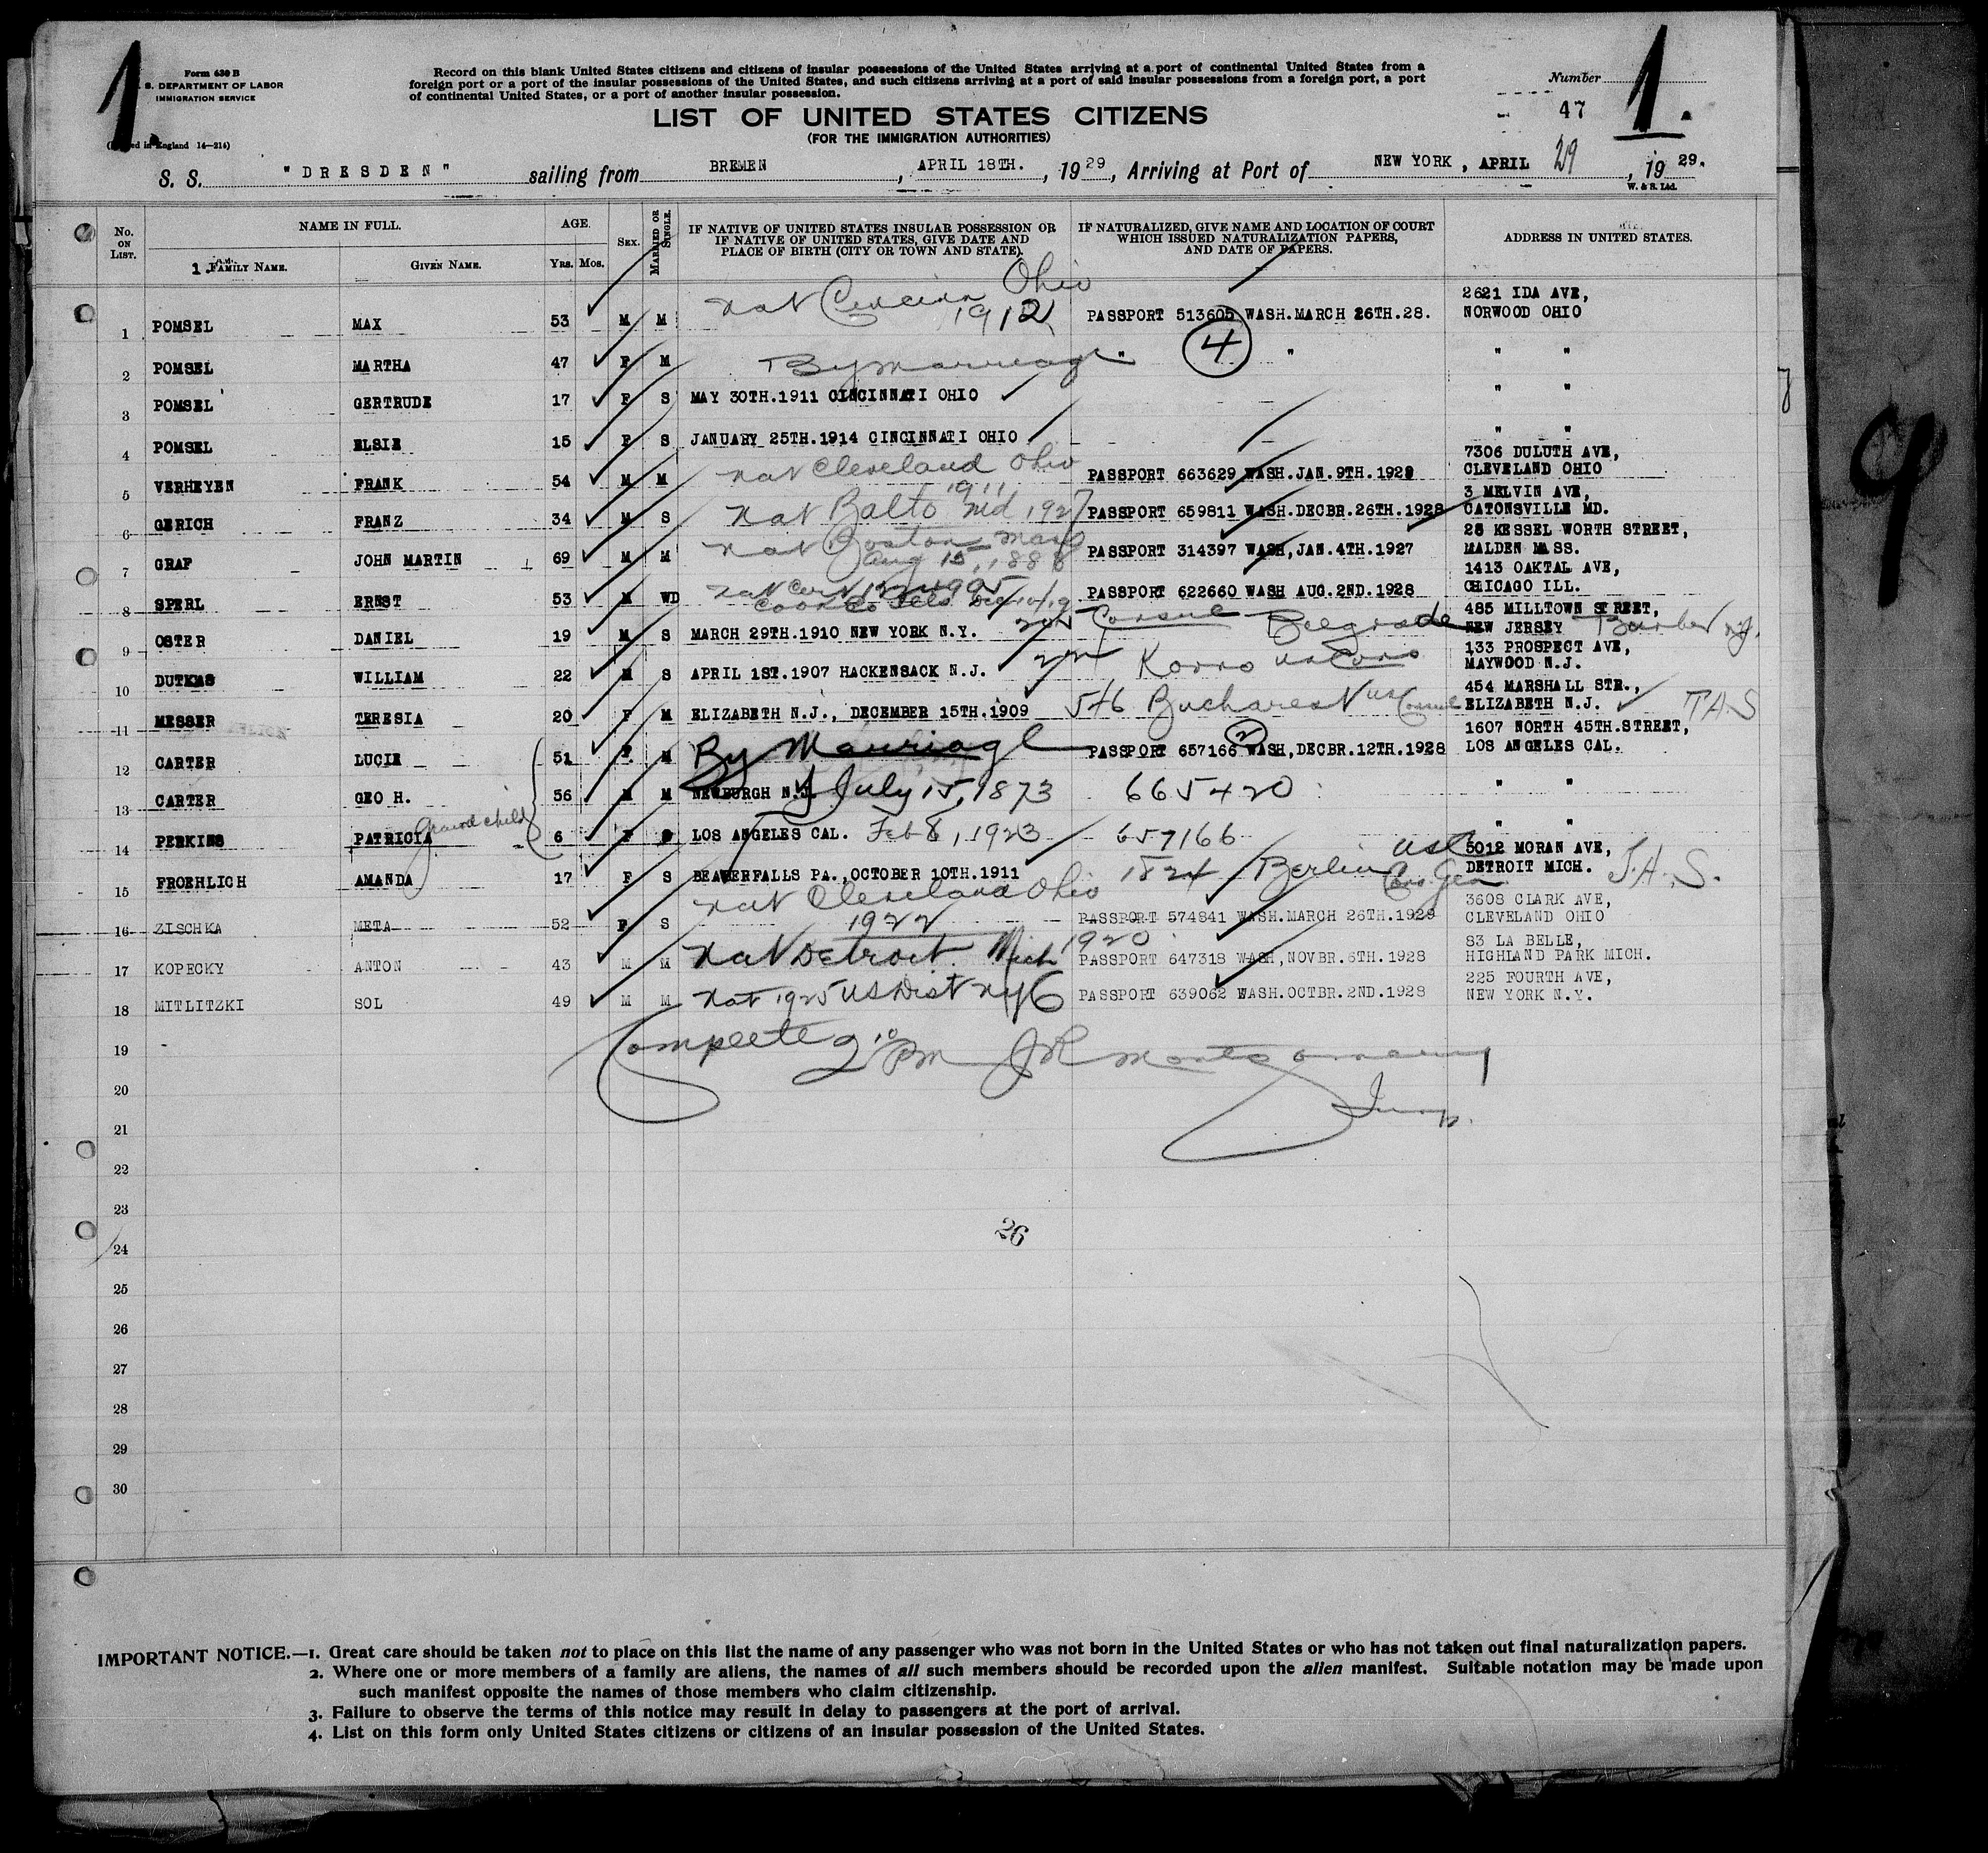 1.
Form 630 B
S. DEPARTMENT OF LABOR
IMMIGRATION SERVICE
in England 14—214)
Record on this blank United States citizens and citizens of insular possessions of the United States arriving at a port of continental United States from a
foreign port or a port of the insular possessions of the United States, and such citizens arriving at a port of said insular possessions from a foreign port, a port
of continental United States, or a port of another insular possession.
LIST OF UNITED STATES CITIZENS
(FOR THE IMMIGRATION AUTHORITIES)
Number 1.
47
S. S. "DRESDEN" sailing from BREMEN, APRIL 18TH., 1929, Arriving at Port of NEW YORK, APRIL 29, 1929.
W. & S. Ltd.
No. ON LIST. NAME IN FULL. AGE. SEX. MARRIED OR SINGLE. IF NATIVE OF UNITED STATES INSULAR POSSESSION OR IF NATIVE OF UNITED STATES, GIVE DATE AND PLACE OF BIRTH (CITY OR TOWN AND STATE). IF NATURALIZED, GIVE NAME AND LOCATION OF COURT WHICH ISSUED NATURALIZATION PAPERS, AND DATE OF PAPERS. ADDRESS IN UNITED STATES.
1. FAMILY NAME. GIVEN NAME. Yrs. Mos.
1 POMSEL MAX 53 M M nat Cincinn Ohio 1912 PASSPORT 513605 WASH. MARCH 26TH.28. 2621 IDA AVE, NORWOOD OHIO
2 POMSEL MARTHA 47 F M By marriage " 4 " " "
3 POMSEL GERTRUDE 17 F S MAY 30TH.1911 CINCINNATI OHIO " "
4 POMSEL ELSIE 15 F S JANUARY 25TH.1914 CINCINNATI OHIO " "
5 VERHEYEN FRANK 54 M M nat Cleveland Ohio 1911 PASSPORT 663629 WASH.JAN.9TH.1929 7306 DULUTH AVE, CLEVELAND OHIO
6 GERICH FRANZ 34 M S nat Balto Md 1927 PASSPORT 659811 WASH.DECBR.26TH.1928 3 MELVIN AVE, CATONSVILLE MD.
7 GRAF JOHN MARTIN 69 M M nat Boston Mass Aug 15, 1888 PASSPORT 314397 WASH, JAN.4TH.1927 28 KESSEL WORTH STREET, MALDEN MASS.
8 SPERL ERNST 53 M WD nat Cook Co Ills PASSPORT 622660 WASH AUG.2ND.1928 1413 OAKTAL AVE, CHICAGO ILL.
9 OSTER DANIEL 19 M S MARCH 29TH.1910 NEW YORK N.Y. Consul Belgrade 485 MILLTOWN STREET, NEW JERSEY
10 DUTKAS WILLIAM 22 M S APRIL 1ST.1907 HACKENSACK N.J. 133 PROSPECT AVE, MAYWOOD N.J.
11 MESSER TERESIA 20 F M ELIZABETH N.J., DECEMBER 15TH.1909 546 Bucharest US Consul 454 MARSHALL STR., ELIZABETH N.J. T.A.S
12 CARTER LUCIE 51 F M By Marriage PASSPORT 657166 WASH, DECBR.12TH.1928 2 1607 NORTH 45TH.STREET, LOS ANGELES CAL.
13 CARTER GEO H. 56 M M NEWBURGH N.Y. July 15, 1873 665420 " "
14 PERKINS PATRICIA grand child 6 F S LOS ANGELES CAL. Feb 8, 1923 657166 " "
15 FROEHLICH AMANDA 17 F S BEAVERFALLS PA., OCTOBER 10TH.1911 1824 Berlin Cons Gen 5012 MORAN AVE, DETROIT MICH. T.A.S.
16 ZISCHKA META 52 F S nat Cleveland Ohio 1922 PASSPORT 574841 WASH.MARCH 26TH.1929 3608 CLARK AVE, CLEVELAND OHIO
17 KOPECKY ANTON 43 M M nat Detroit Mich 1920 PASSPORT 647318 WASH, NOVBR.6TH.1928 83 LA BELLE, HIGHLAND PARK MICH.
18 MITLITZKI SOL 49 M M nat 1925 US Dist NYC PASSPORT 639062 WASH.OCTBR.2ND.1928 225 FOURTH AVE, NEW YORK N.Y.
19 Complete 2 10 PM J R Montgomery
20 Insp.
21
22
23
24 26
25
26
27
28
29
30
9
IMPORTANT NOTICE.—1. Great care should be taken not to place on this list the name of any passenger who was not born in the United States or who has not taken out final naturalization papers.
2. Where one or more members of a family are aliens, the names of all such members should be recorded upon the alien manifest. Suitable notation may be made upon
such manifest opposite the names of those members who claim citizenship.
3. Failure to observe the terms of this notice may result in delay to passengers at the port of arrival.
4. List on this form only United States citizens or citizens of an insular possession of the United States.